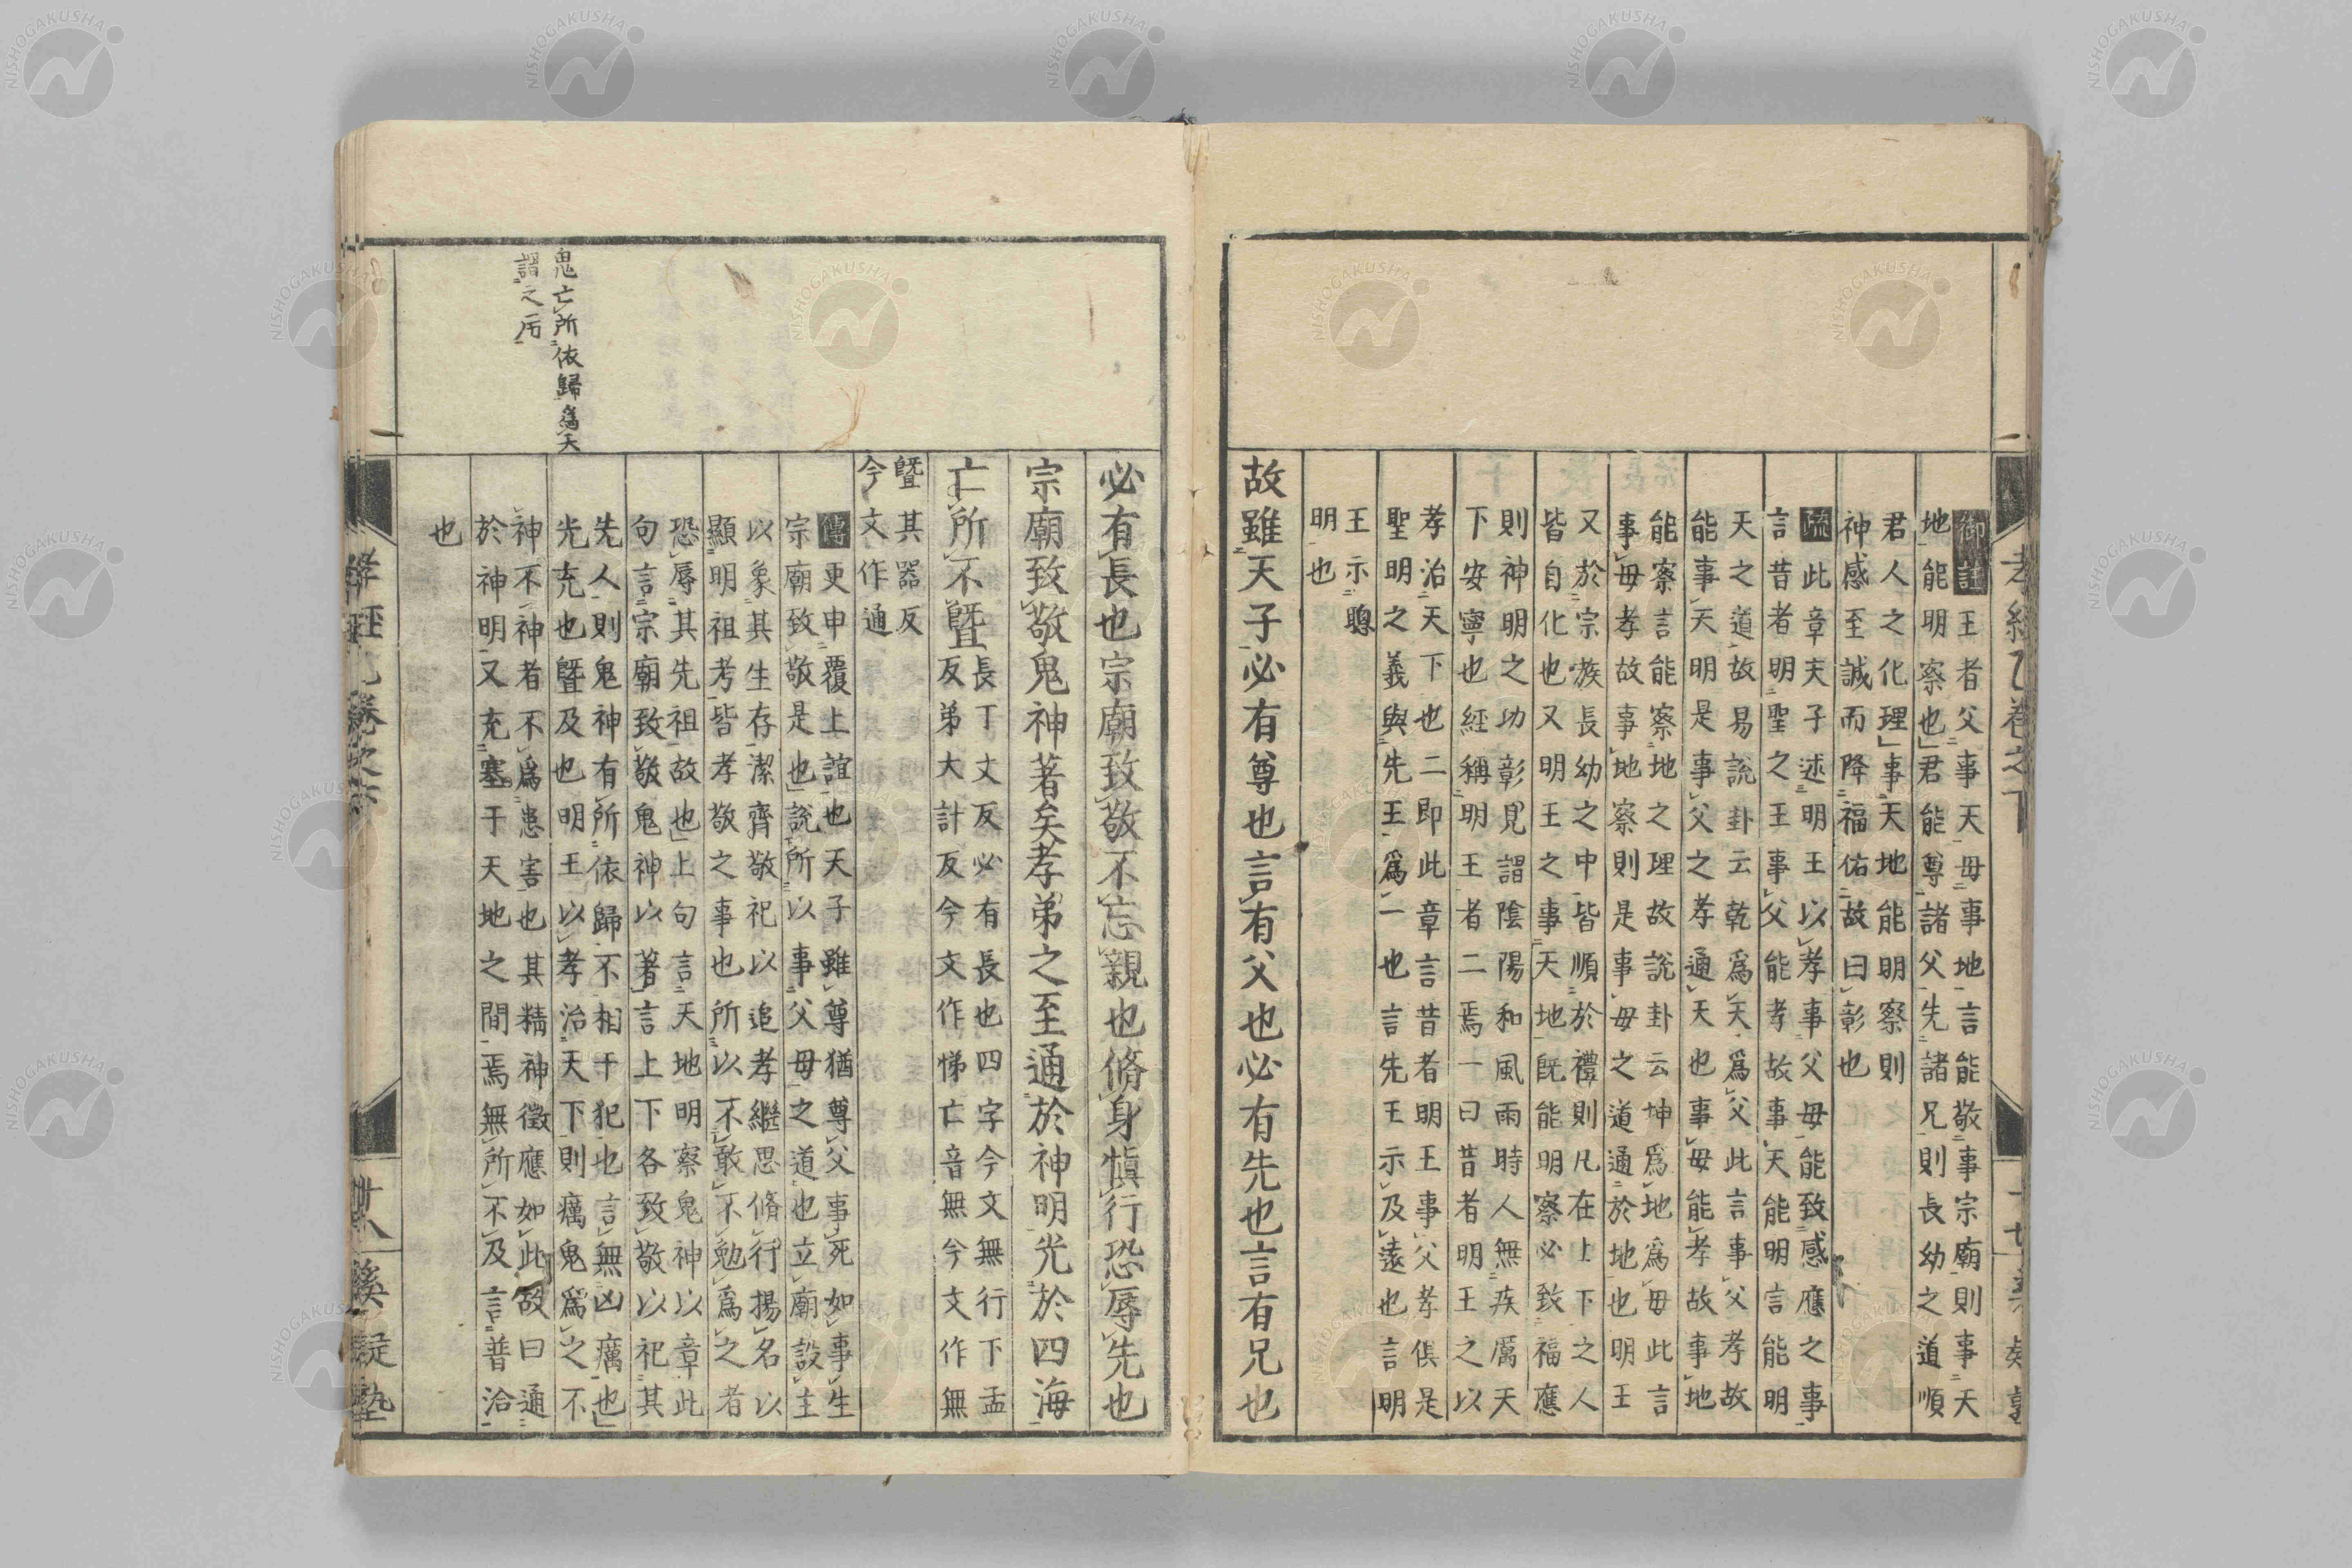 御註王者父事天母事地言能敬事宗廟則事天
地能明察也君能尊諸父先諸兄則長幼之道順
君人之化理事天地能明察則
神感至誠而降福佑故曰彰也
疏此章夫子述明王以孝事父母能致感應之事
言昔者明聖之王事父能孝故事天能明言能明
天之道故易說卦云乾爲天爲父此言事父孝故
能事天明是事父之孝通天也事母能孝故事地
能察言能察地之理故說卦云坤爲地爲母此言
事母孝故事地察則是事母之道通於地也明王
又於宗族長幼之中皆順於禮則凡在上下之人
皆自化也又明王之事天地既能明察必致福應
則神明之功彰見謂陰陽和風雨時人無疾厲天
下安寧也經稱明王者二焉一曰昔者明王之以
孝治天下也二即此章言昔者明王事父孝俱是
聖明之義與先王爲一也言先王示及遠也言明
王示聰
明也
故雖天子必有尊也言有父也必有先也言有兄也
必有長也宗廟致敬不忘親也脩身愼行恐辱先也
宗廟致敬鬼神著矣孝弟之至通於神明光於四海
亡所不曁
長丁丈反必有長也四字今文無行下孟
反弟大計反今文作悌亡音無今文作無
曁其器反
今文作通
傳更申覆上誼也天子雖尊猶尊父事死如事生
宗廟致敬是也說所以事父母之道也立廟設主
以象其生存潔齊敬祀以追孝繼思脩行揚名以
顯明祖考皆孝敬之事也所以不敢不勉爲之者
恐辱其先祖故也上句言天地明察鬼神以章此
句言宗廟致敬鬼神以著言上下各致敬以祀其
先人則鬼神有所依歸不相干犯也言無凶癘也
光充也曁及也明王以孝治天下則癘鬼爲之不
神不神者不爲患害也其精神徵應如此故曰通
於神明又充塞于天地之間焉無所不及言普洽
也
鬼亡所依歸爲天
謂之